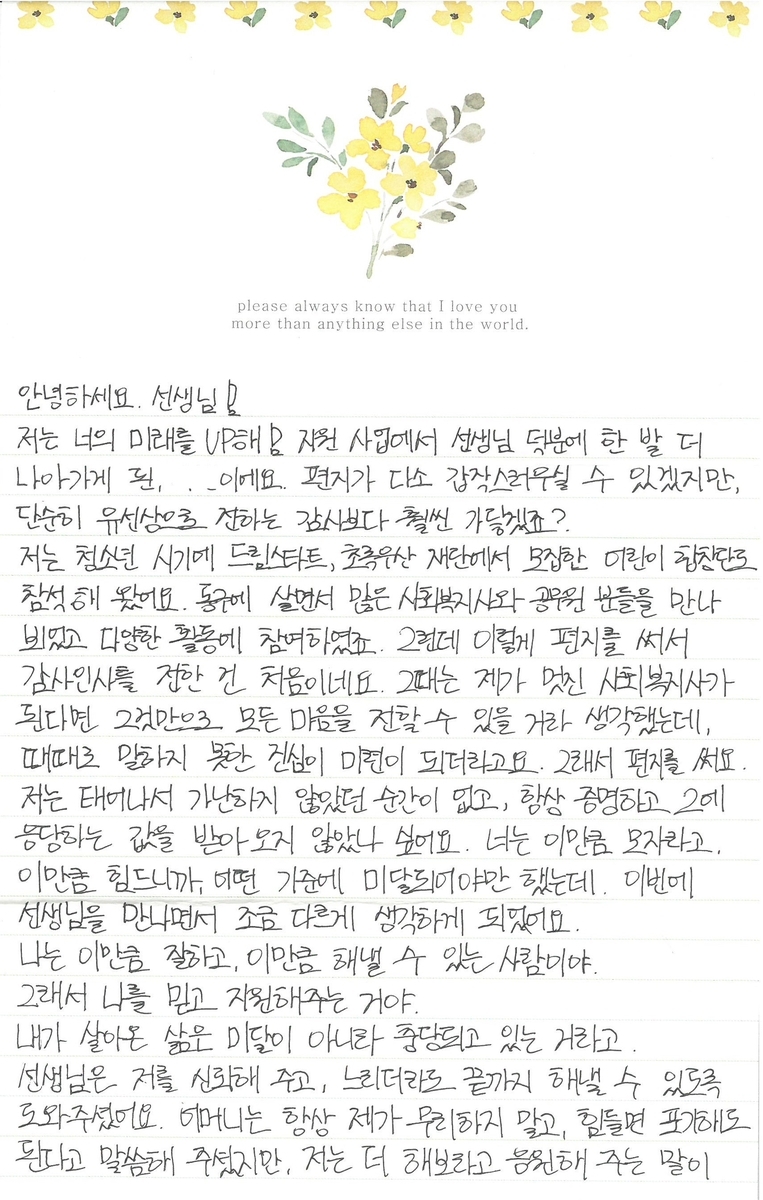 please always know that I love you
more than anything else in the world.
안녕하세요. 선생님!
저는 너의 미래를 UP해! 지원 사업에서 선생님 덕분에 한 발 더
나아가게 된, . .이에요. 편지가 다소 갑작스러우실 수 있겠지만,
단순히 유선상으로 전하는 감사보다 훨씬 가닿겠죠?
저는 청소년 시기에 드림스타트, 초록우산 재단에서 모집한 어린이 합창단도
참석해 왔어요. 동구에 살면서 많은 사회복지사와 공무원 분들을 만나
뵈었고 다양한 활동에 참여하였죠. 그런데 이렇게 편지를 써서
감사인사를 전한 건 처음이네요. 그때는 제가 멋진 사회복지사가
된다면 그것만으로 모든 마음을 전할 수 있을 거라 생각했는데,
때때로 말하지 못한 진심이 미련이 되더라고요. 그래서 편지를 써요.
저는 태어나서 가난하지 않았던 순간이 없고, 항상 증명하고 그에
응당하는 값을 받아 오지 않았나 싶어요. 너는 이만큼 모자라고,
이만큼 힘드니까, 어떤 기준에 미달되어야만 했는데. 이번에
선생님을 만나면서 조금 다르게 생각하게 되었어요.
나는 이만큼 잘하고, 이만큼 해낼 수 있는 사람이야.
그래서 나를 믿고 지원해주는 거야.
내가 살아온 삶은 미달이 아니라 충당되고 있는 거라고.
선생님은 저를 신뢰해 주고, 느리더라도 끝까지 해낼 수 있도록
도와주셨어요. 어머니는 항상 제가 무리하지 말고, 힘들면 포기해도
된다고 말씀해 주셨지만, 저는 더 해보라고 응원해 주는 말이